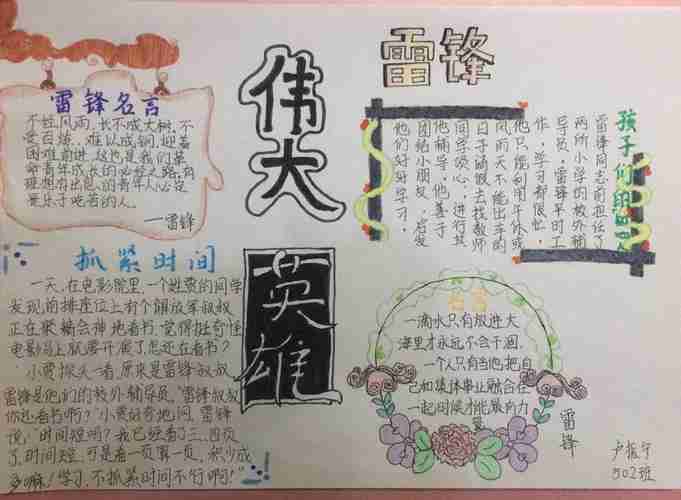 雷锋
伟大
英雄
雷锋名言
不经风雨，长不成大树，不
受百炼，难以成钢，迎着
困难前进，这也是我们革
命青年成长的必经之路，有
理想有出息的青年人必定
是乐于吃苦的人。
——雷锋
抓紧时间
一天，在电影院里，一个姓贾的同学
发现前排座位上有个解放军叔叔
正在聚精会神地看书，觉得挺奇怪
电影马上就要开演了，您还在看书？
小贾探头一看原来是雷锋叔叔，
雷锋是他们的校外辅导员，“雷锋叔叔
你还看书啊？”小贾好奇地问，雷锋
说，“时间短吗？我已经看了三、四页
了，时间短，可是看一页算一页，积少成
多嘛！学习，不抓紧时间不行啊！”
孩子们的
雷锋同志前担任了
两所小学的校外辅
导员，雷锋平时工
作，学习都很忙，
他只能利用午休或
风雨天不能出车的
日子请假去找教师
同学谈心，进行校
外辅导，他善于
团结小朋友，启发
他们好好学习，
名言
一滴水只有放进大
海里才永远不会干涸，
一个人只有当他把自
己和集体事业融合在
一起的时候才能最有力
量
雷锋
卢振宇
502班